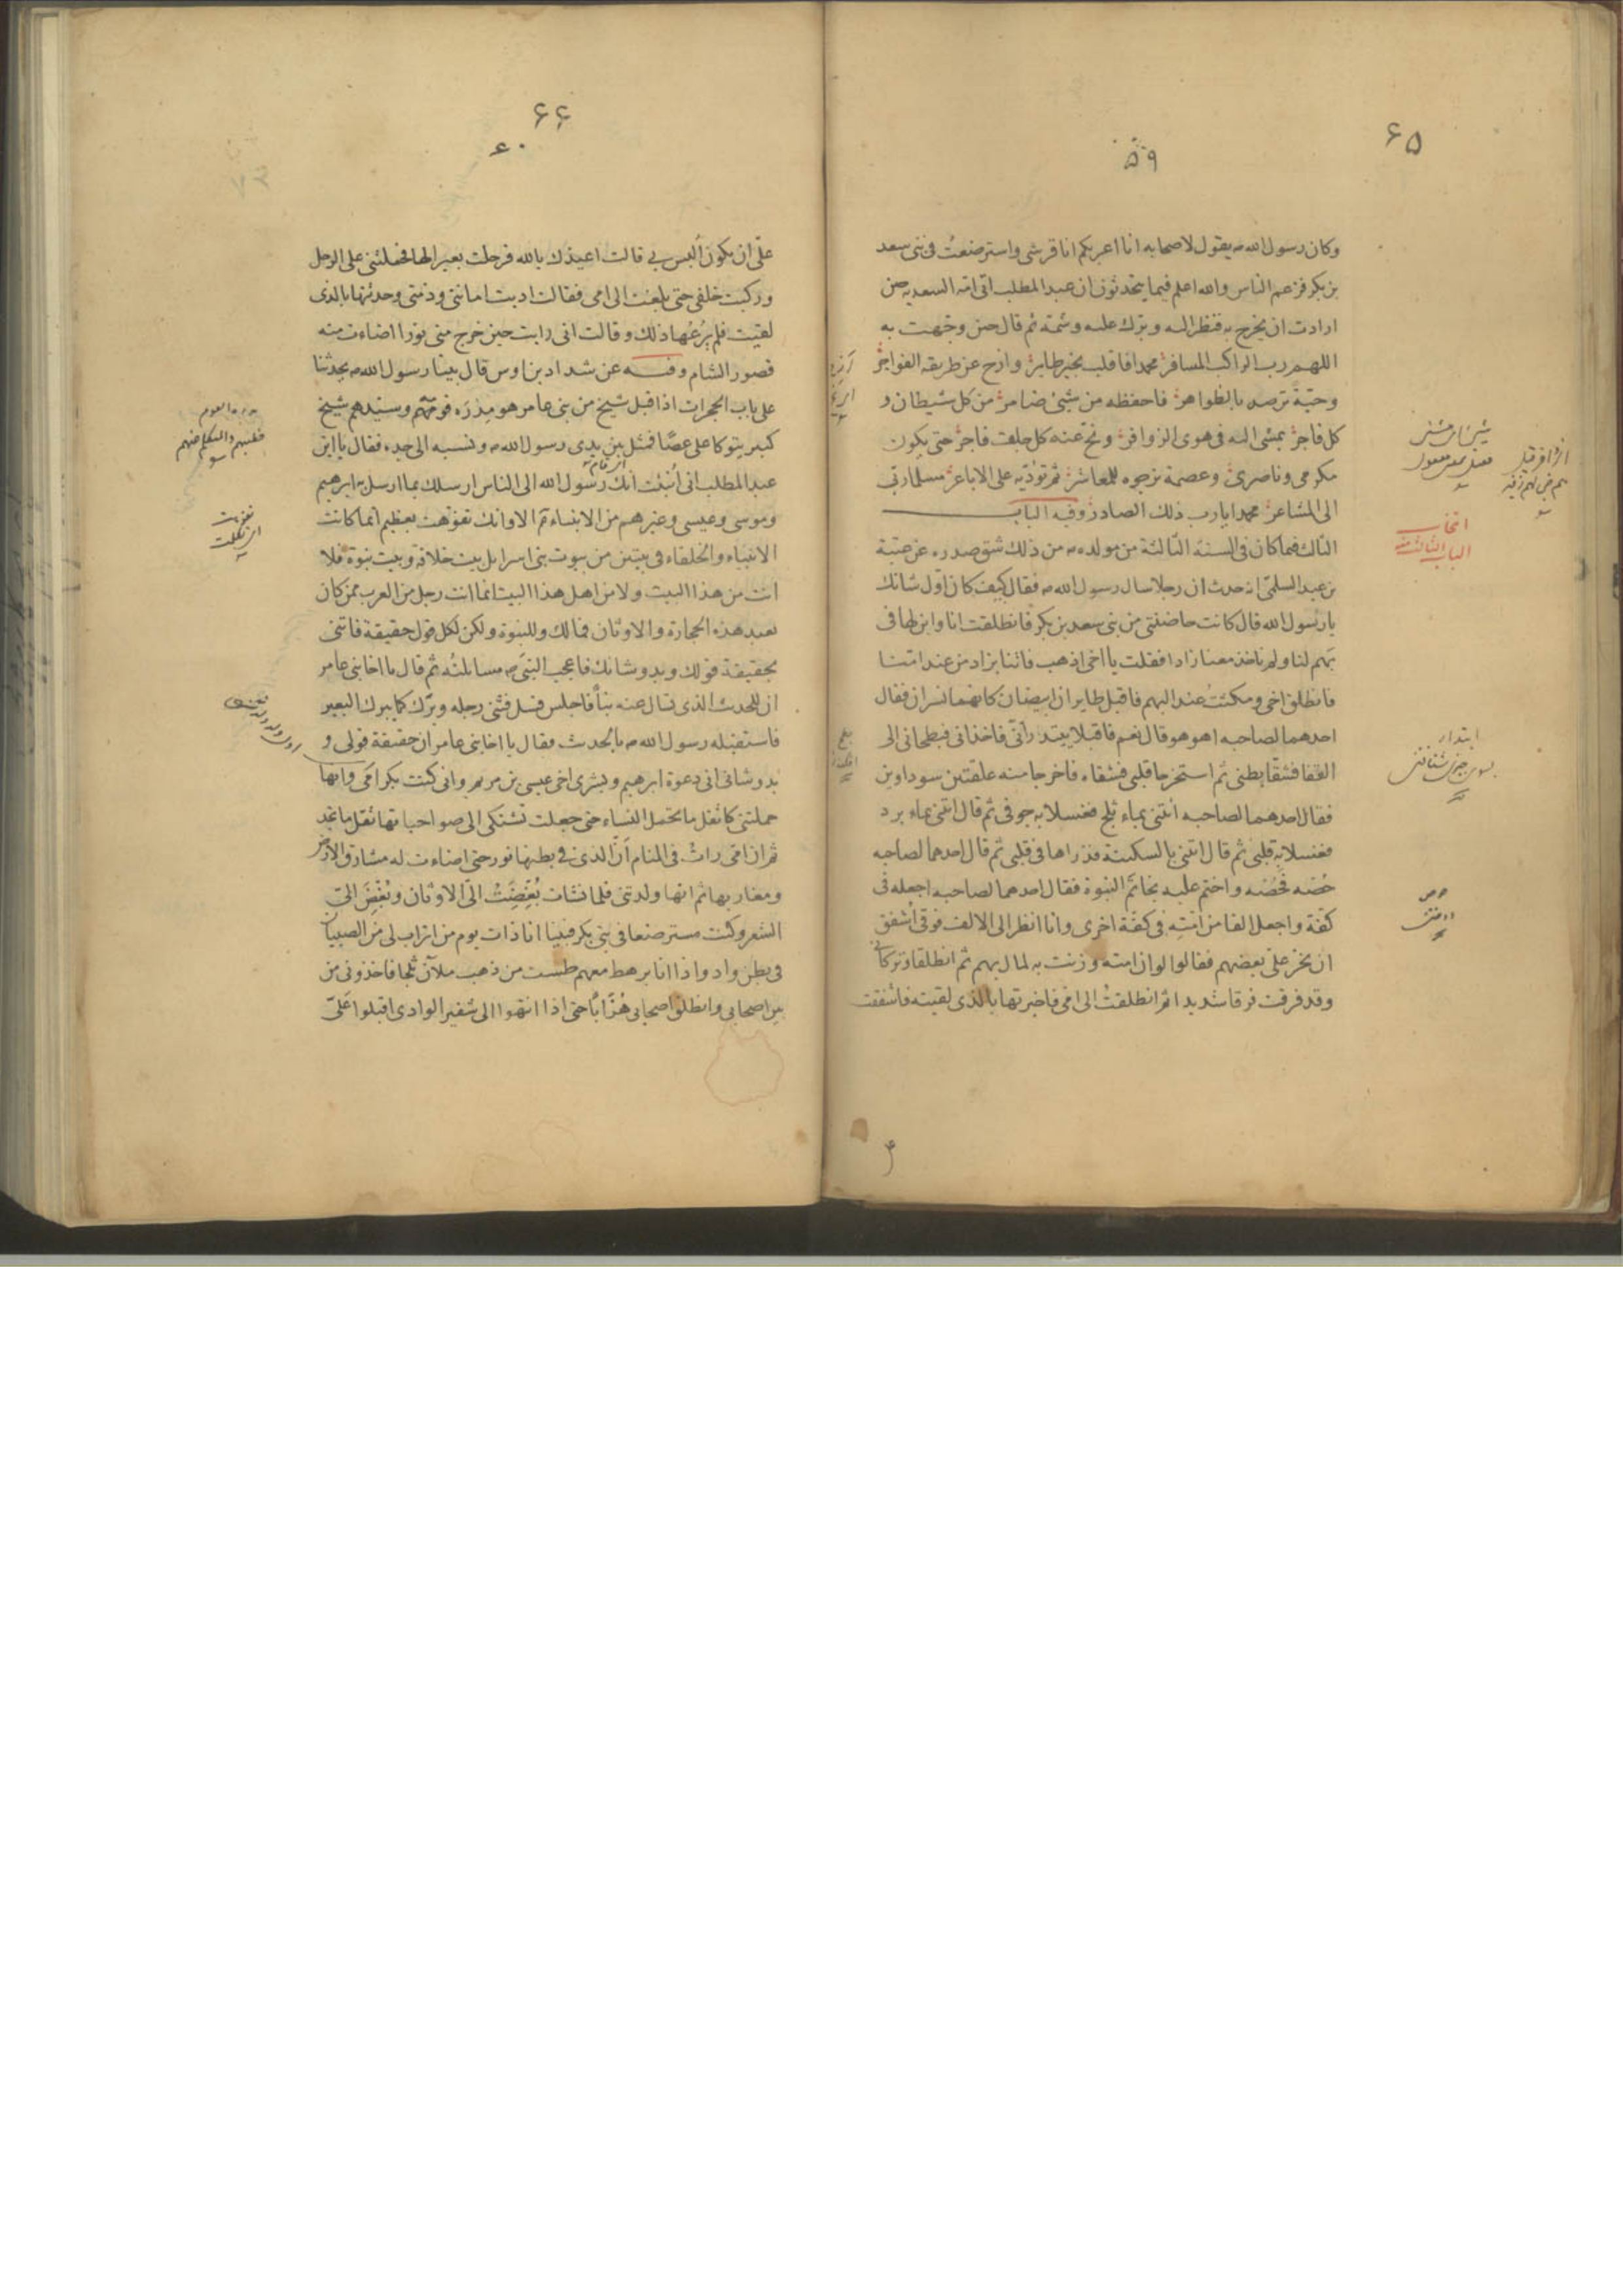 ۶۵
۵۹
وكان رسول الله ص يقول لاصحابه انا اعربكم انا قرشى واسترضعتُ فى بنى سعد
بن بكر فزعم الناس والله اعلم فيما يتحدثون ان عبد المطلب اتى امه السعديه حين
ارادت ان يخرج به فنظر اليه وبرك عليه وشمه ثم قال حين وجهت به
اللهم رب الراكب المسافر محمدا فاقلب بخير طاير وازح عن طريقه الفواجر
وحية ترصد بالظواهر فاحفظه من شئ ضامر من كل شيطان و
كل فاجر يمشى اليه فى هوى الزوافر ونح عنه كل فاجر حتى يكون
مكرمى وناصرى وعصمة نرجوه للمعاشر ثم تؤديه على الاباعر مسلما ربى
الى المشاعر محمدا يا رب ذلك الصادر وفيه الباب
الثالث فيما كان فى السنة الثالثة من مولده ص من ذلك شق صدره عن عتبة
بن عبد السلمى انه حدث ان رجلا سال رسول الله ص فقال كيف كان اول شانك
يا رسول الله قال كانت حاضنتى من بنى سعد بن بكر فانطلقت انا وابن لها فى
بَهم لنا ولم ناخذ معنا زادا فقلت يا اخى اذهب فائتنا بزاد من عند امنا
فانطلق اخى ومكثتُ عند البهم فاقبل طايران ابيضان كانهما نسران فقال
احدهما لصاحبه اهو هو قال نعم فاقبلا يبتدرانى فاخذانى فبطحانى الى
القفا فشقّا بطنى ثم استخرجا قلبى فشقاه فاخرجا منه علقتين سوداوين
فقال احدهما لصاحبه ائتنى بماء ثلج فغسلا به جوفى ثم قال ائتنى بماء برد
فغسلا به قلبى ثم قال ائتنى بالسكينة فذراها فى قلبى ثم قال احدهما لصاحبه
حُصْه فحُصْه واختم عليه بخاتَم النبوة فقال احدهما لصاحبه اجعله فى
كفّة واجعل الفا من امّتِه فى كفة اخرى وانا انظر الى الالف فوقى اُشفق
ان يخر على بعضهم فقالوا لو ان امته وزنت به لمال بهم ثم انطلقا وتركانى
وقد فرقت فرقا شديدا ثم انطلقتُ الى امى فاخبرتها بالذى لقيته فاشفقت
انتخاب
الباب الثالث منه
ابتدار
۶۶
۶۰
علّى ان يكون اُلبس بى قالت اعيذك بالله فرحلت بعيرا لها فحملتنى على الرحل
وركبت خلفى حتى بلغت الى امى فقالت اديت امانتى وذمتى وحدثتها بالذى
لقيت فلم يرُعْها ذلك وقالت انى رايت حين خرج منى نورا اضاءت منه
قصور الشام وفيه عن شداد بن اوس قال بينا رسول الله ص يحدثنا
على باب الحجرات اذا قبل شيخ من بنى عامر هو مِدْرَه قومهم وسيّدهم شيخ
كبير يتوكا على عصًا فمثل بين يدى رسول الله ص ونسبه الى جده فقال يا ابن
عبد المطلب انى اُنبئت انك رسول الله الى الناس ارسلك بما ارسل به ابرهيم
وموسى وعيسى وغيرهم من الانبياء ثم الا وانك تفوّهت بعظيم انما كانت
الانبياء والخلفاء فى بيتين من بيوت بنى اسرايل بيت خلافة وبيت نبوة فلا
انت من هذا البيت ولا من اهل هذا البيت انما انت رجل من العرب ممن كان
يعبد هذه الحجارة والاوثان فمالك وللنبوة ولكن لكل قول حقيقة فاتنى
بحقيقة قولك وبدو شانك فاعجب النبىّ ص مسايلتُه ثم قال يا اخا بنى عامر
ان للحديث الذى تسال عنه نبأً فاجلس فسل فثنى رجله وبرك كما يبرك البعير
فاستقبله رسول الله ص بالحديث فقال يا اخا بنى عامر ان حقيقة قولى و
بدو شانى انى دعوة ابرهيم وبشرى اخى عيسى بن مريم وانى كنت بكر امّى وانها
حملتنى كاثقل ما تحمل النساء حتى جعلت تشتكى الى صواحباتها ثقل ما تجد
ثم ان امّى رات فى المنام اَنَّ الذى فى بطنها نور حتى اضاءت له مشارق الارض
ومغاربها ثم انها ولدتنى فلما نشات بُغِّضَتْ الىّ الاوثان وبُغّضَ الىّ
الشعر وكنت مسترضعا فى بنى بكر فبينا انا ذات يوم من اتراب لى من الصبيان
فى بطن واد واذا انا برهط معهم طست من ذهب ملآن ثلجا فاخذونى من
بين اصحابى وانطلق اصحابى هُرَّابًا حتى اذا انتهوا الى شفير الوادى اقبلوا عَلىّ